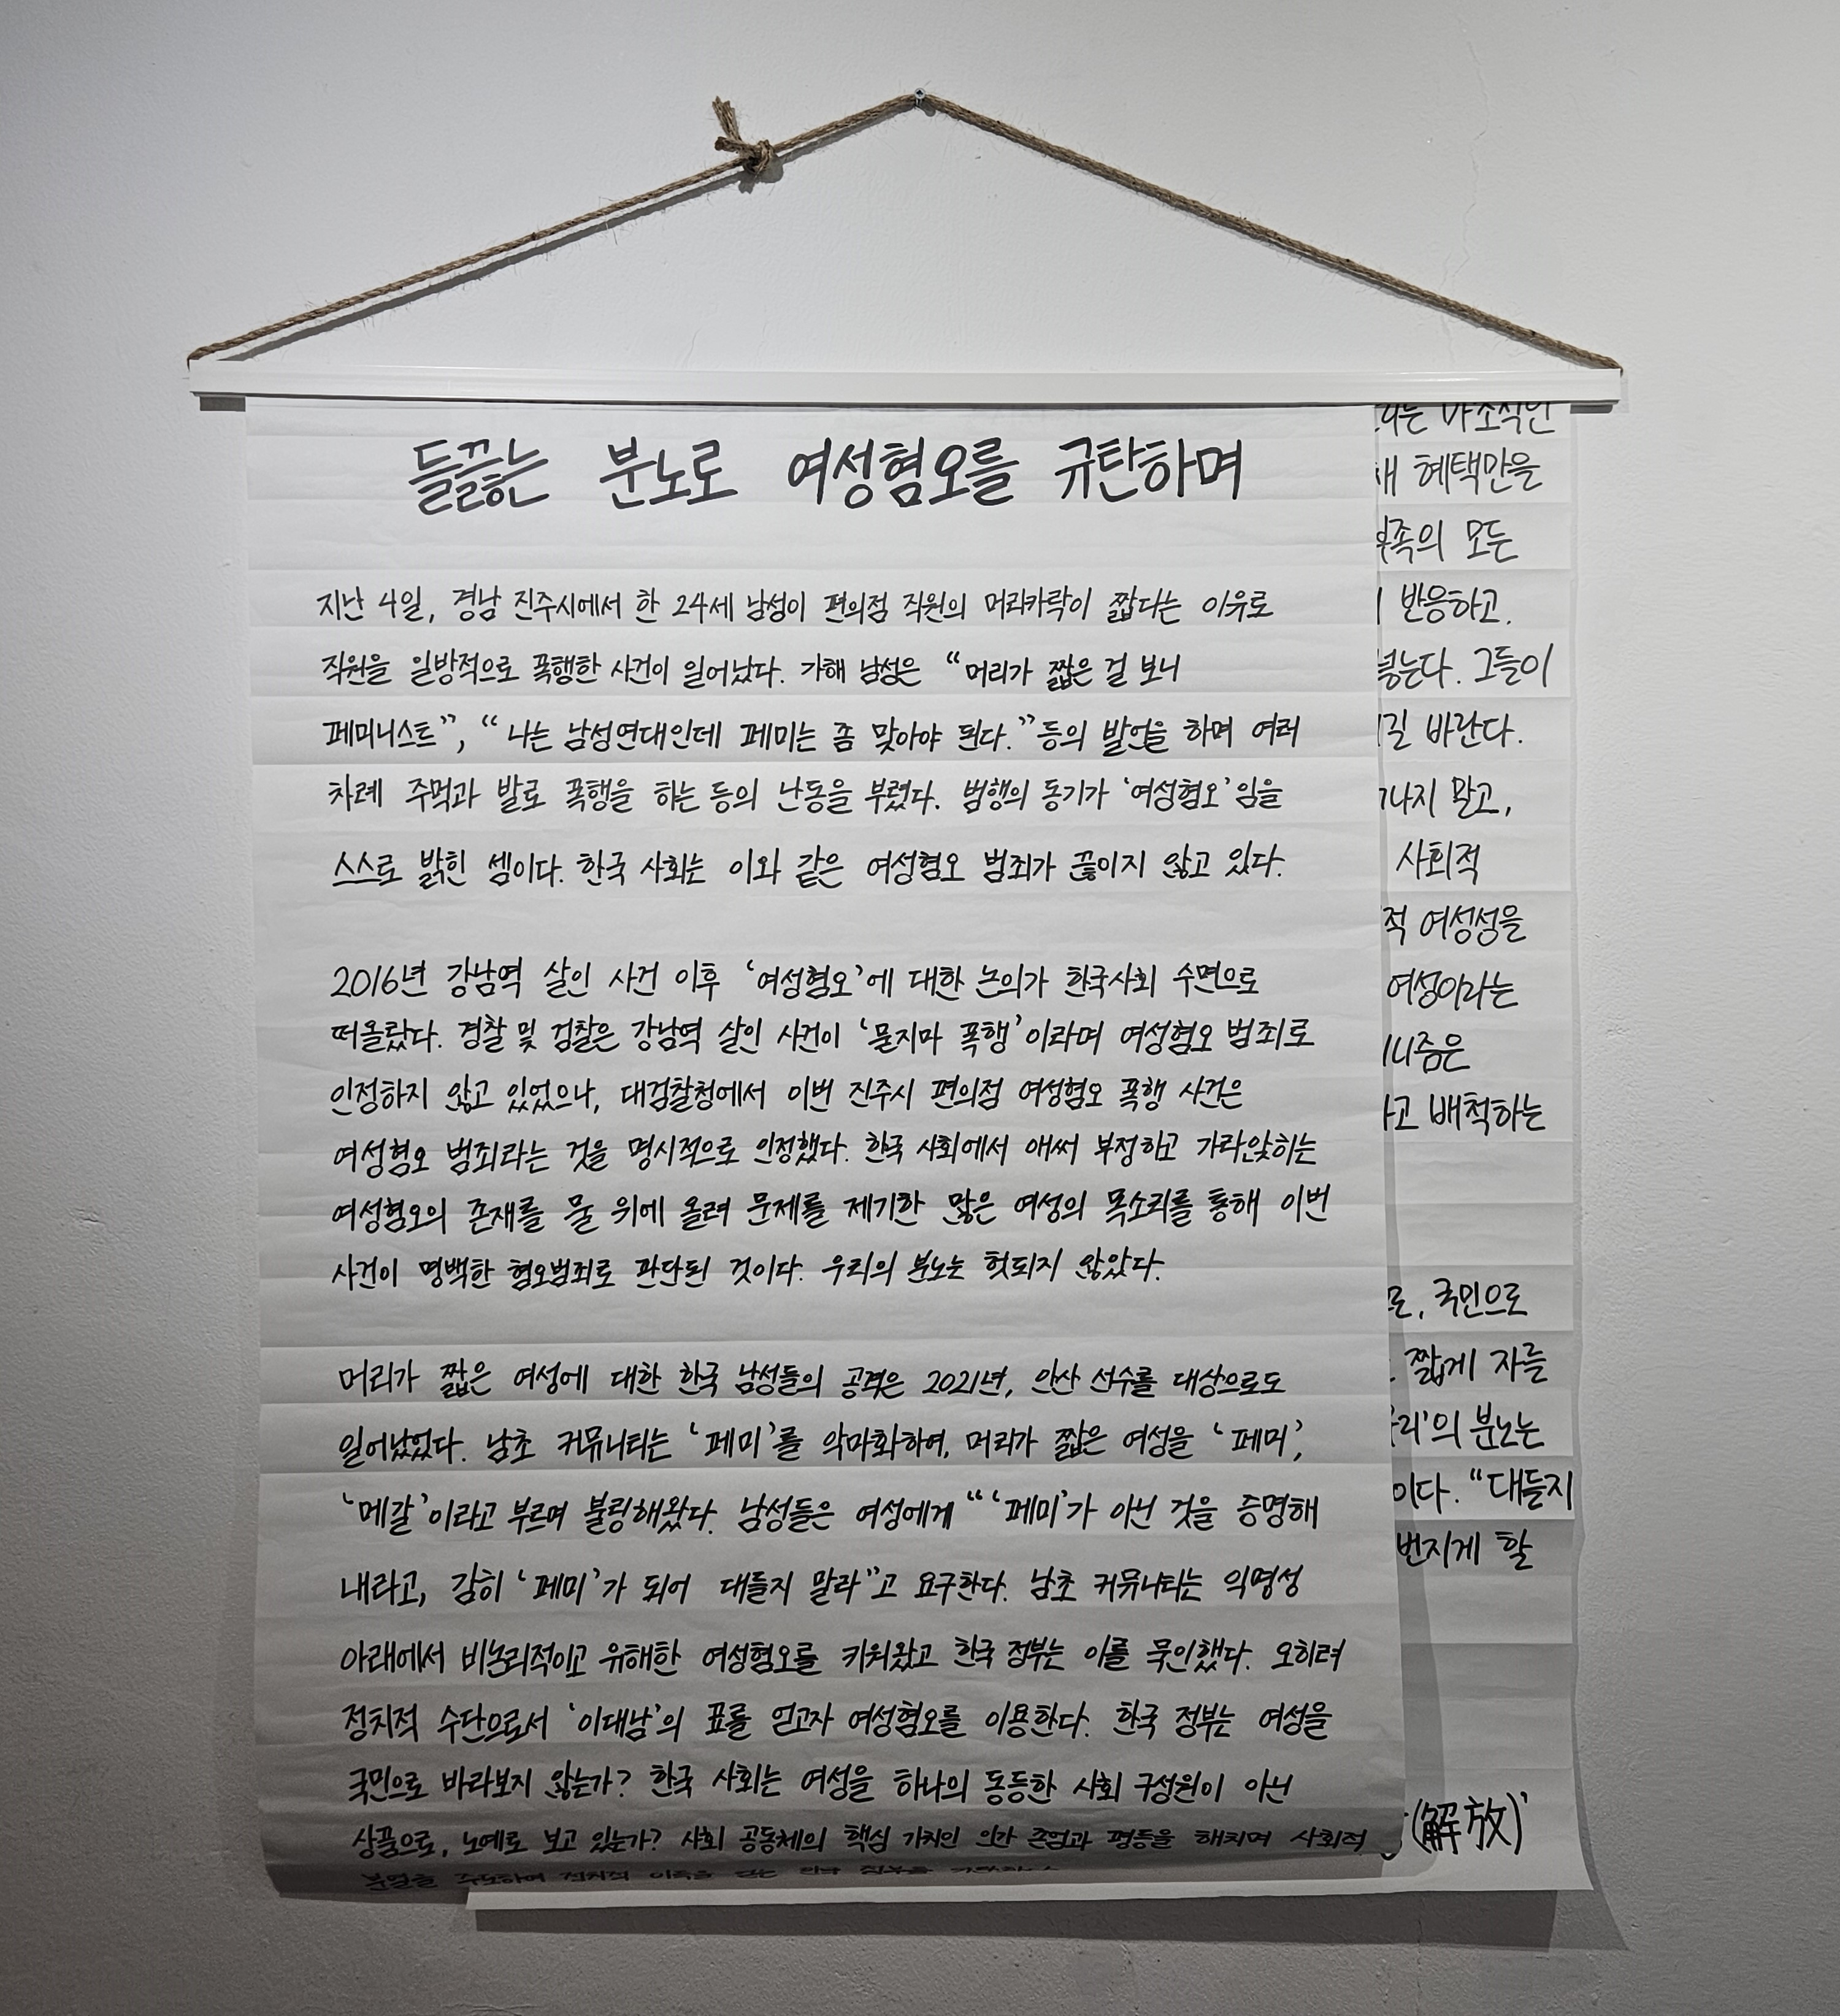 들끓는 분노로 여성혐오를 규탄하며
지난 4일, 경남 진주시에서 한 24세 남성이 편의점 직원의 머리카락이 짧다는 이유로
직원을 일방적으로 폭행한 사건이 일어났다. 가해 남성은 “머리가 짧은 걸 보니
페미니스트”, “나는 남성연대인데 페미는 좀 맞아야 된다.” 등의 발언을 하며 여러
차례 주먹과 발로 폭행을 하는 등의 난동을 부렸다. 범행의 동기가 ‘여성혐오’임을
스스로 밝힌 셈이다. 한국 사회는 이와 같은 여성혐오 범죄가 끊이지 않고 있다.
2016년 강남역 살인 사건 이후 ‘여성혐오’에 대한 논의가 한국사회 수면으로
떠올랐다. 경찰 및 검찰은 강남역 살인 사건이 ‘묻지마 폭행’이라며 여성혐오 범죄로
인정하지 않고 있었으나, 대검찰청에서 이번 진주시 편의점 여성혐오 폭행 사건은
여성혐오 범죄라는 것을 명시적으로 인정했다. 한국 사회에서 애써 부정하고 가라앉히는
여성혐오의 존재를 물 위에 올려 문제를 제기한 많은 여성의 목소리를 통해 이번
사건이 명백한 혐오범죄로 판단된 것이다. 우리의 분노는 헛되지 않았다.
머리가 짧은 여성에 대한 한국 남성들의 공격은 2021년, 안산 선수를 대상으로도
일어났었다. 남초 커뮤니티는 ‘페미’를 악마화하여, 머리가 짧은 여성을 ‘페미’,
‘메갈’이라고 부르며 불링해왔다. 남성들은 여성에게 “‘페미’가 아닌 것을 증명해
내라고, 감히 ‘페미’가 되어 대들지 말라”고 요구한다. 남초 커뮤니티는 익명성
아래에서 비논리적이고 유해한 여성혐오를 키워왔고 한국 정부는 이를 묵인했다. 오히려
정치적 수단으로서 ‘이대남’의 표를 얻고자 여성혐오를 이용한다. 한국 정부는 여성을
국민으로 바라보지 않는가? 한국 사회는 여성을 하나의 동등한 사회 구성원이 아닌
상품으로, 노예로 보고 있는가? 사회 공동체의 핵심 가치인 인간 존엄과 평등을 해치며 사회적
혜택만을
모든
반응하고.
그들이
바란다.
말고,
사회적
여성성을
여성이라는
배척하는
국민으로
짧게 자를
분노는
“대들지
번지게 할
(解放)’